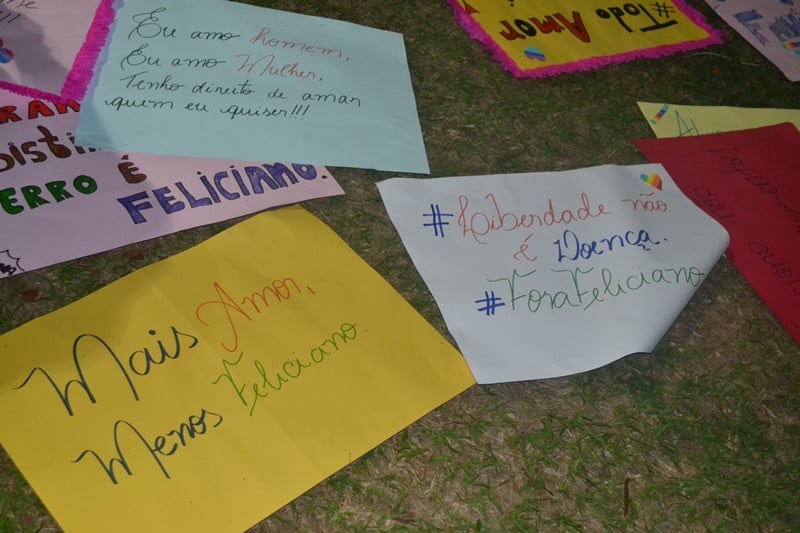 Eu amo homem,
Eu amo Mulher,
Tenho direito de amar
quem eu quiser!!!
#Todo Amor
é
ERRO É
FELICIANO.
#Liberdade não
é Doença.
#ForaFeliciano
Mais Amor,
Menos Feliciano.